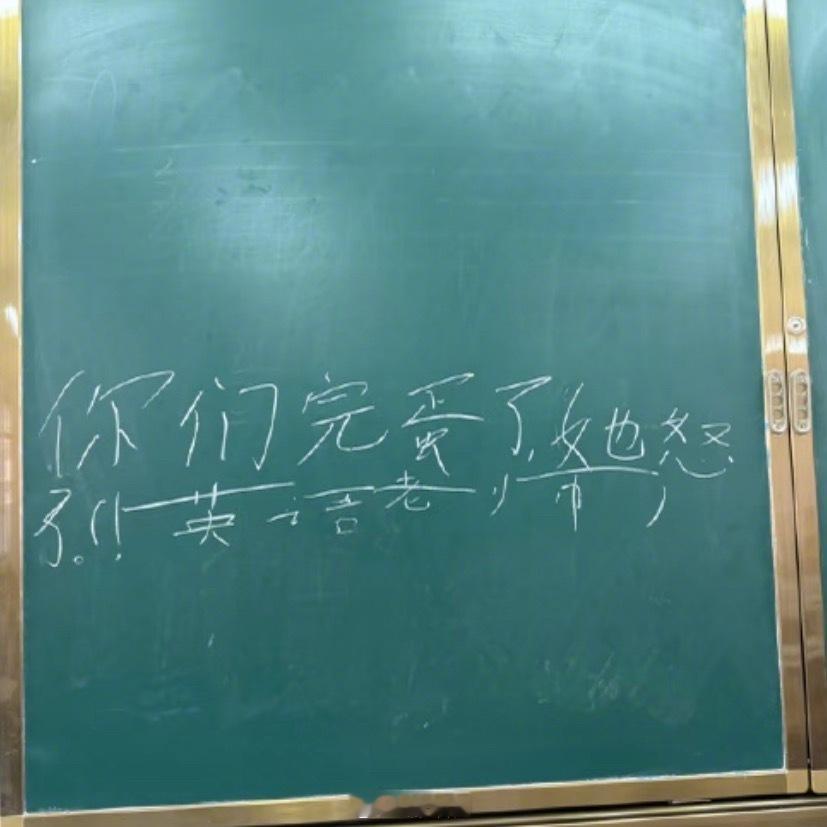 你们完蛋了,她怒
了。(英语老师)